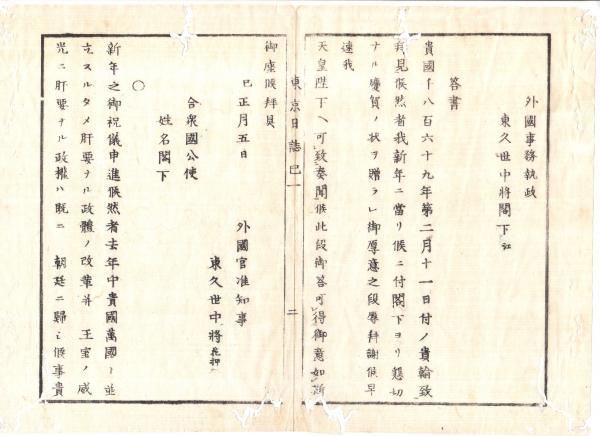 外國事務執政
東久世中將閣下ニ
答書
貴國千八百六十九年第二月十一日付ノ貴翰致
拜見候然者我新年ニ當リ候ニ付閣下ヨリ懇切
ナル慶賀ノ状ヲ贈ラレ御厚意之段辱拜謝候早
速我
天皇陛下ヘ可致奏聞候此段御答可得御意如斯
東京日誌巳一 二
御座候拜具
巳正月五日
外國官准知事
東久世中將花押
合衆國公使
姓名閣下
○
新年之御祝儀申進候然者去年中貴國萬國ト並
立スルタメ肝要ナル政體ノ改革并 王室ノ威
光ニ肝要ナル政權ハ既ニ 朝廷ニ歸シ候事貴